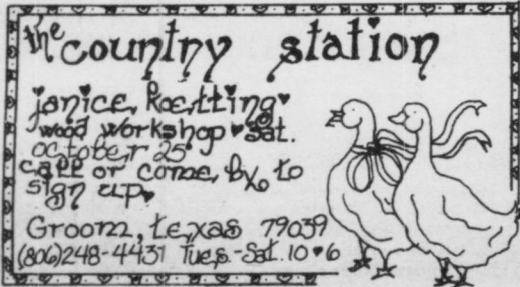 the country station
janice koetting
wood workshop sat.
october 25
call or come by to
sign up
Groom, texas 79039
(806)248-4431 Tues.-Sat. 10♥6